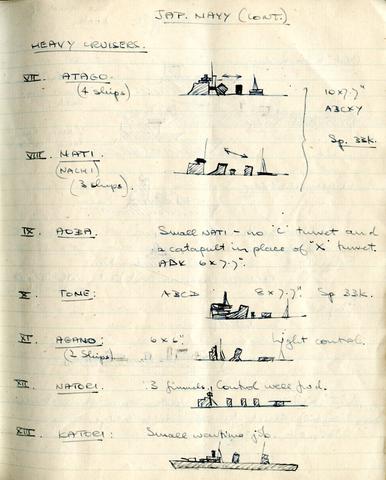 JAP. NAVY (CONT.)
HEAVY CRUISERS.
VII. ATAGO.
(4 ships)
10 x 7.7"
ABCXY
Sp. 33k.
VIII. NATI.
(NACHI)
(3 ships).
IX. AOBA.
Small NATI - no "C" turret and
a catapult in place of "X" turret.
6 x 7.7".
X. TONE: ABCD 8 x 7.7" Sp 33k.
XI. AGANO: 6 x 6" Light control.
(2 Ships)
XII. NATORI. 3 funnels, Control well fwd.
XIII KATORI: Small wartime job.